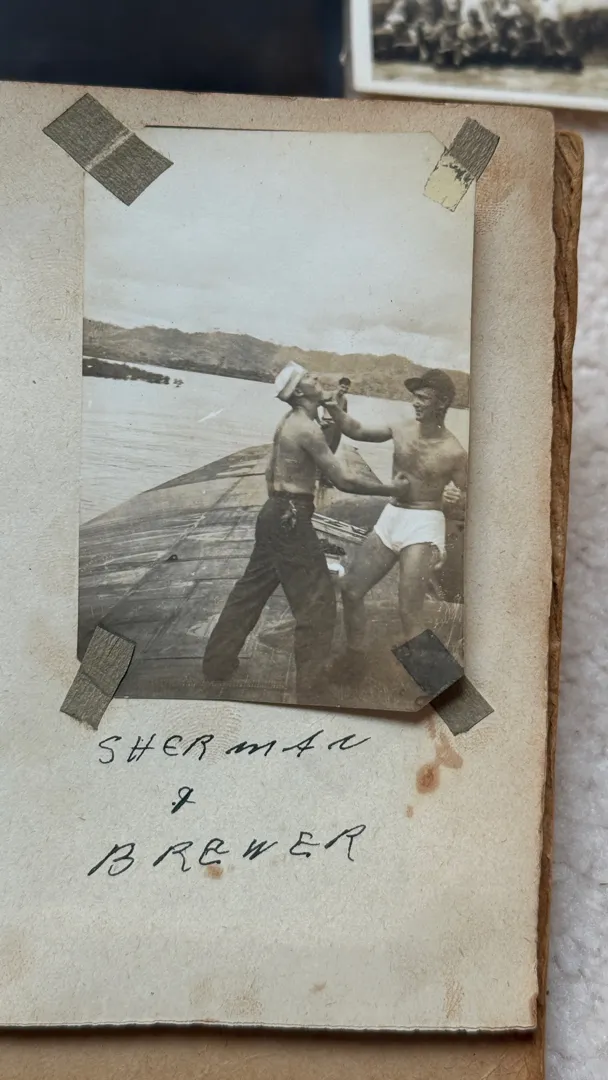 SHERMAN
&
BREWER